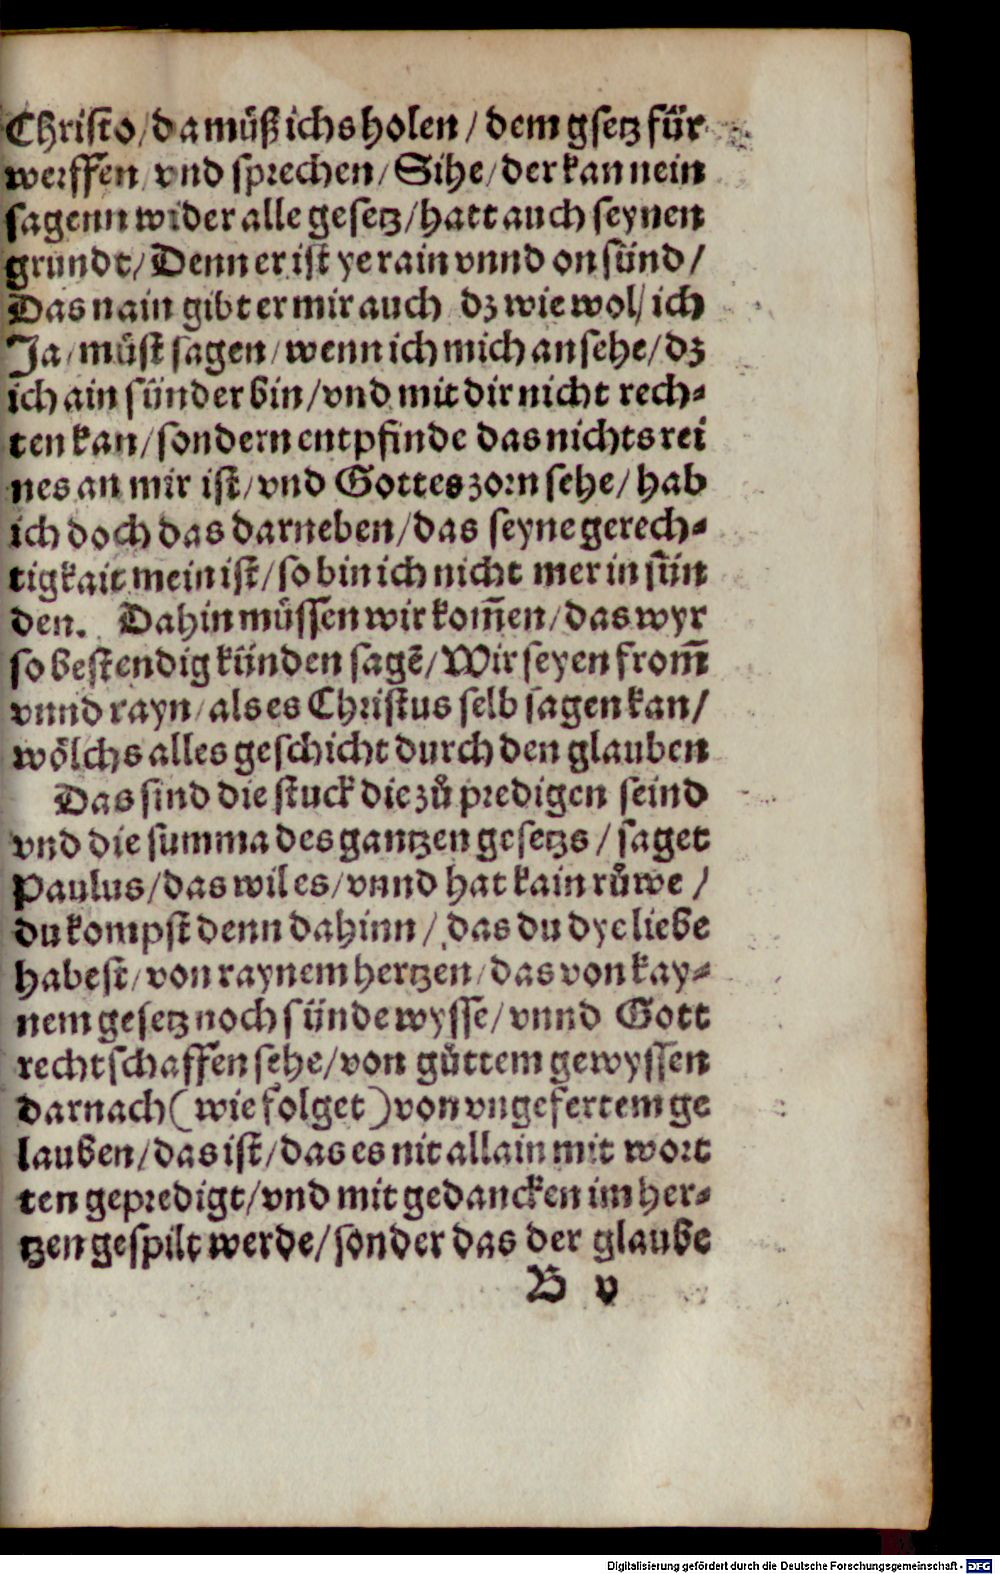 Christo/ da muͤß ichs holen/ dem gsetz für
werffen/ vnd sprechen/ Sihe/ der kan nein
sagenn wider alle gesetz/ hatt auch seynen
grundt/ Denn er ist ye rain vnnd on sünd/
Das nain gibt er mir auch dz wie wol/ ich
Ja/ muͤst sagen/ wenn ich mich ansehe/ dz
ich ain sünder bin/ vnd mit dir nicht rech-
ten kan/ sondern entpfinde das nichts rei
nes an mir ist/ vnd Gottes zorn sehe/ hab
ich doch das darneben/ das seyne gerech-
tigkait mein ist/ so bin ich nicht mer in sün
den. Dahin müssen wir kom̄en/ das wyr
so bestendig künden sagē/ Wir seyen from̄
vnnd rayn/ als es Christus selb sagen kan/
woͤlchs alles geschicht durch den glauben
Das sind die stuck die zuͦ predigen seind
vnd die summa des gantzen gesetzs/ saget
Paulus/ das wil es/ vnnd hat kain ruͦwe/
du kompst denn dahinn/ das du dye liebe
habest/ von raynem hertzen/ das von kay-
nem gesetz noch sünde wysse/ vnnd Gott
rechtschaffen sehe/ von guͦttem gewyssen
darnach (wie folget) von vngefertem ge
lauben/ das ist/ das es nit allain mit wort
ten gepredigt/ vnd mit gedancken im her-
tzen gespilt werde/ sonder das der glaube
B v
Digitalisierung gefördert durch die Deutsche Forschungsgemeinschaft - DFG